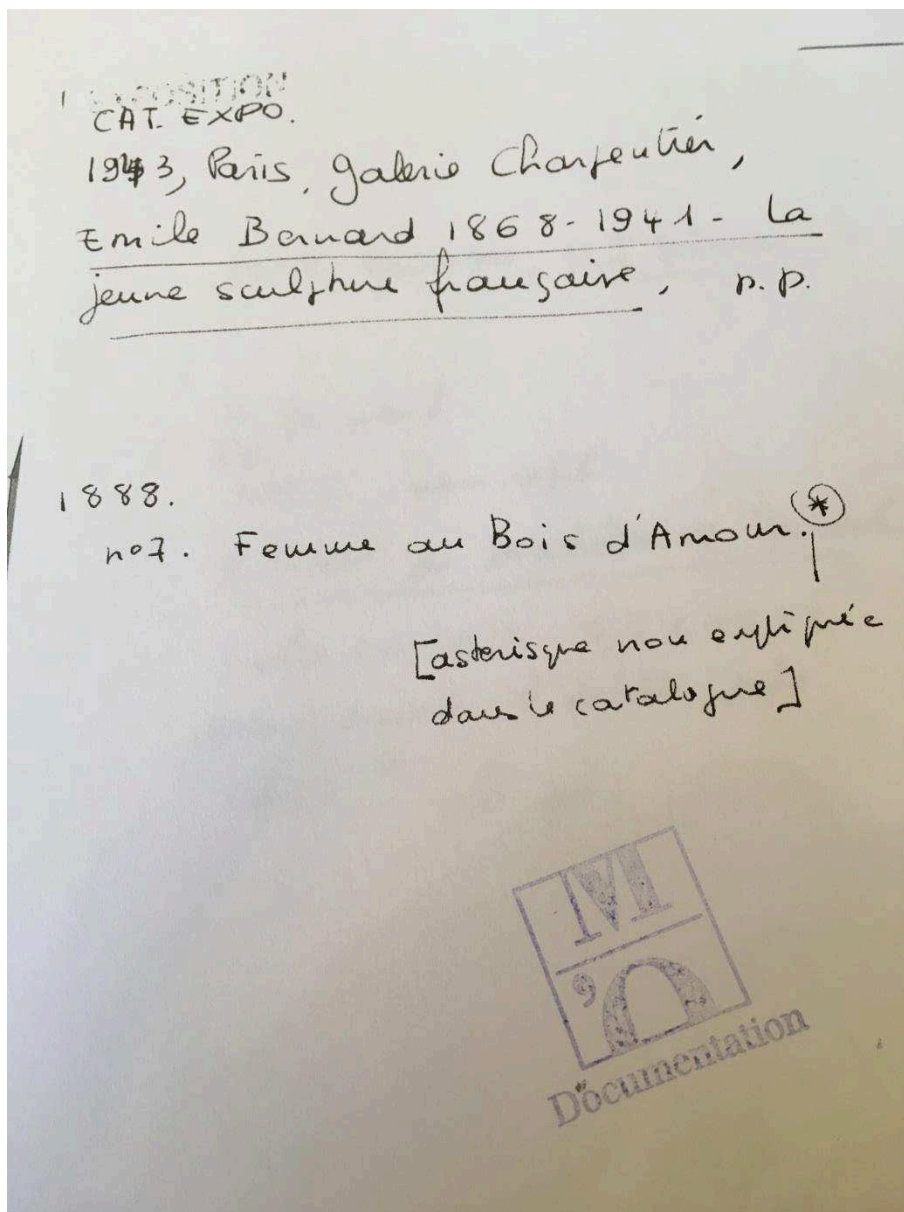 EXPOSITION
CAT. EXPO.
1943, Paris, Galerie Charpentier,
Emile Bernard 1868-1941 - La
jeune sculpture française, n.p.
1888.
n°7. Femme au Bois d'Amour.*
[asterisque non expliquée
dans le catalogue]
M
'O
Documentation